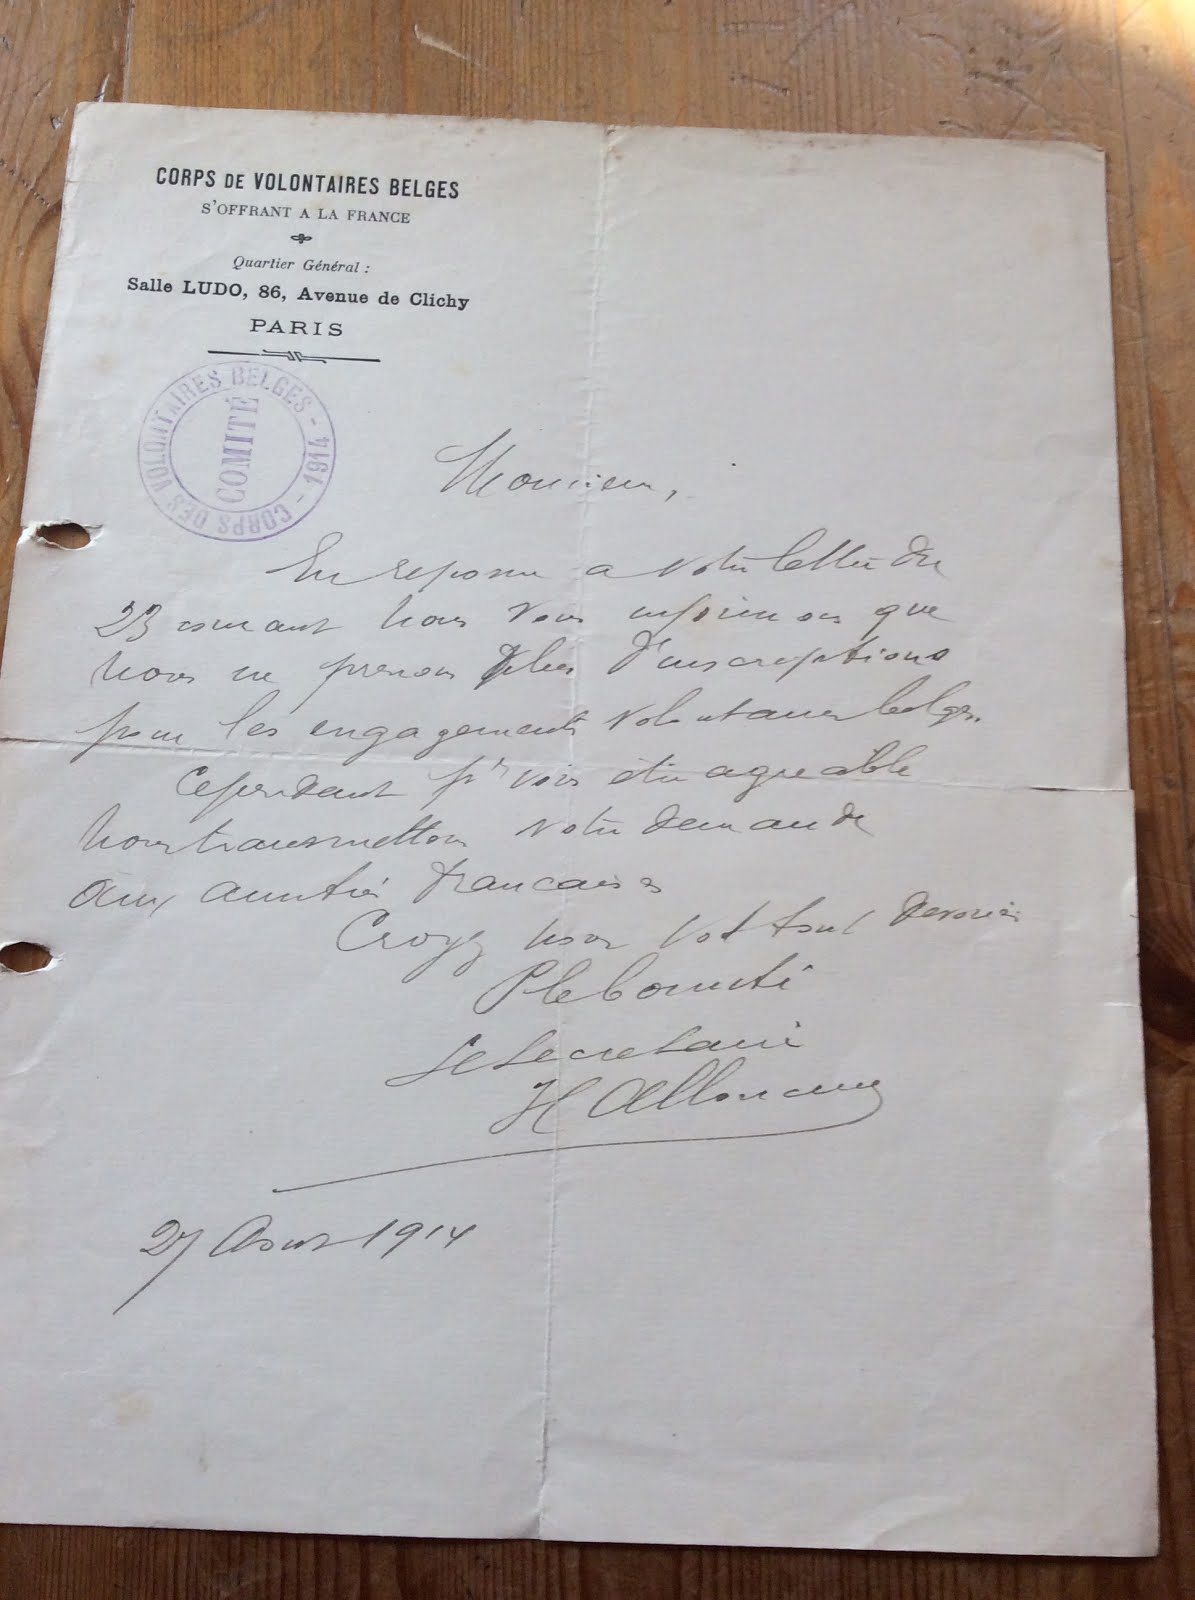 CORPS DE VOLONTAIRES BELGES
S'OFFRANT A LA FRANCE
Quartier Général :
Salle LUDO, 86, Avenue de Clichy
PARIS
CORPS DES VOLONTAIRES BELGES - 1914 -
COMITÉ
Monsieur,
En reponse a votre lettre du
23 courant nous vous informons que
nous ne prenons plus d'inscriptions
pour les engagements volontaires belges.
Cependant pr vous être agreable
nous transmettons votre demande
aux autorités francaises
Croyez nous tout devoués
P le comité
Le secretaire
27 Aout 1914